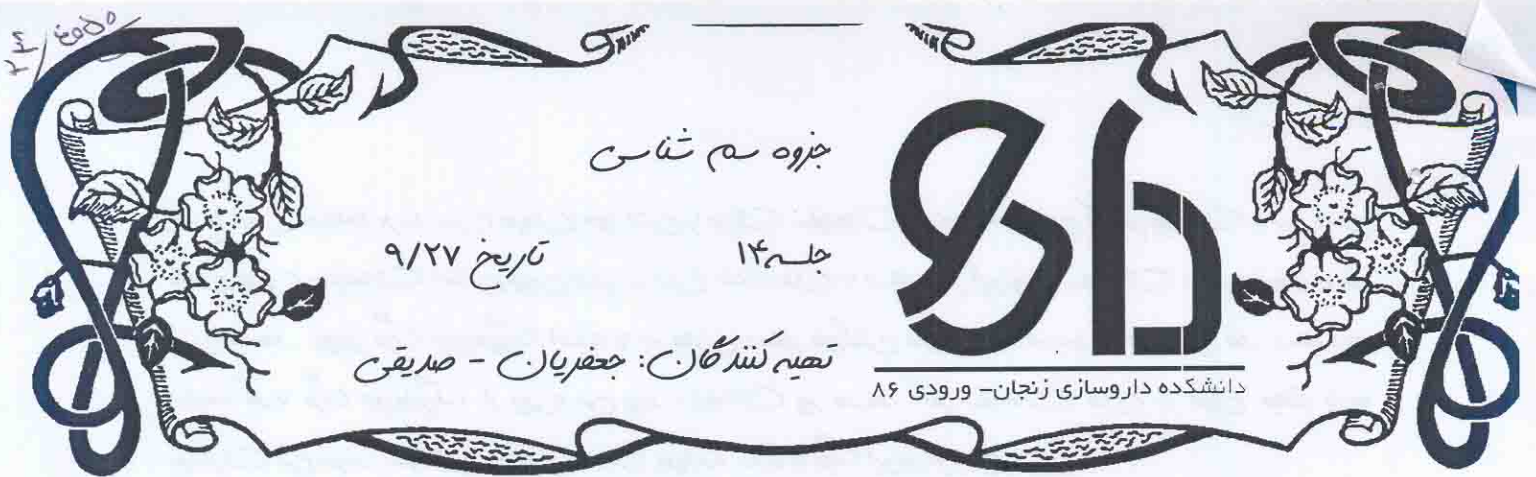 جزوه سم شناسی
جلسه ۱۴ تاریخ ۹/۲۷
تهیه کنندگان: جعفریان - صدیقی
دارو
دانشکده داروسازی زنجان- ورودی ۸۶